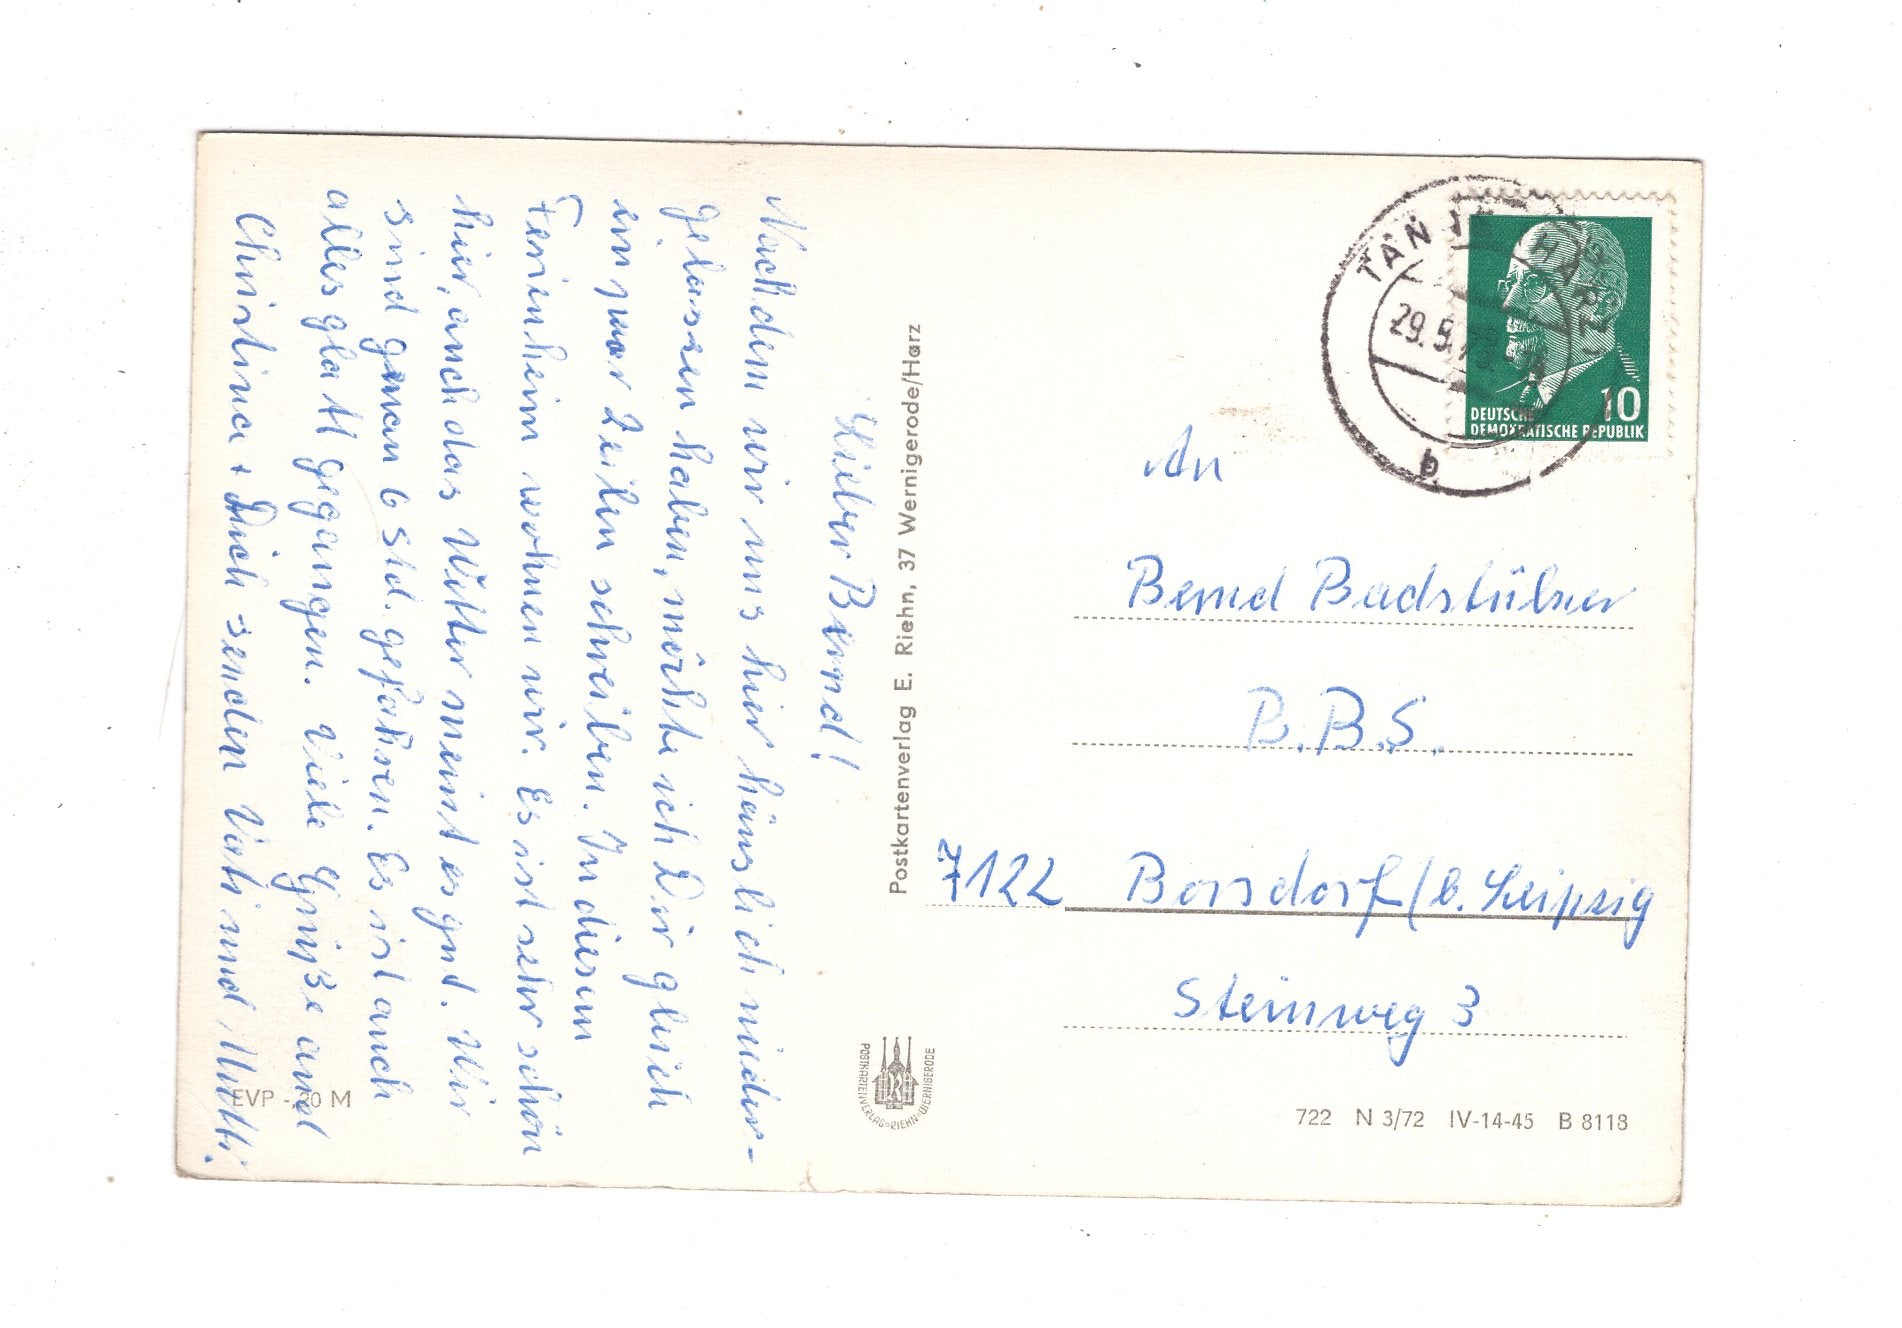 Lieber Bernd!
Nachdem wir uns hier häuslich nieder-
gelassen haben, möchte ich Dir gleich
ein paar Zeilen schreiben. In diesem
Ferienheim wohnen wir. Es ist sehr schön
hier, auch das Wetter meint es gut. Wir
sind genau 6 Std. gefahren. Es ist auch
alles glatt gegangen. Viele Grüße an
Christina + Dich senden Vati und Mutti.
EVP -,20 M
Postkartenverlag E. Riehn, 37 Wernigerode/Harz
POSTKARTENVERLAG RIEHN WERNIGERODE
29.5.
DEUTSCHE
DEMOKRATISCHE REPUBLIK
10
An
Bernd Badstübner
B.B.S.
7122 Borsdorf/b. Leipzig
Steinweg 3
722 N 3/72 IV-14-45 B 8118